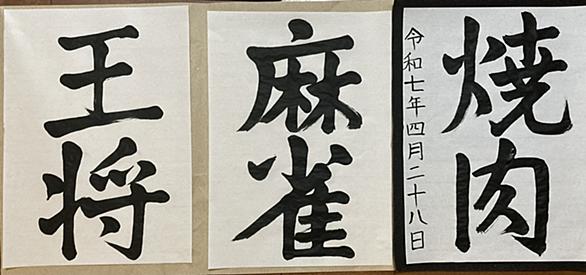 焼肉
令和七年四月二十八日
麻雀
王将